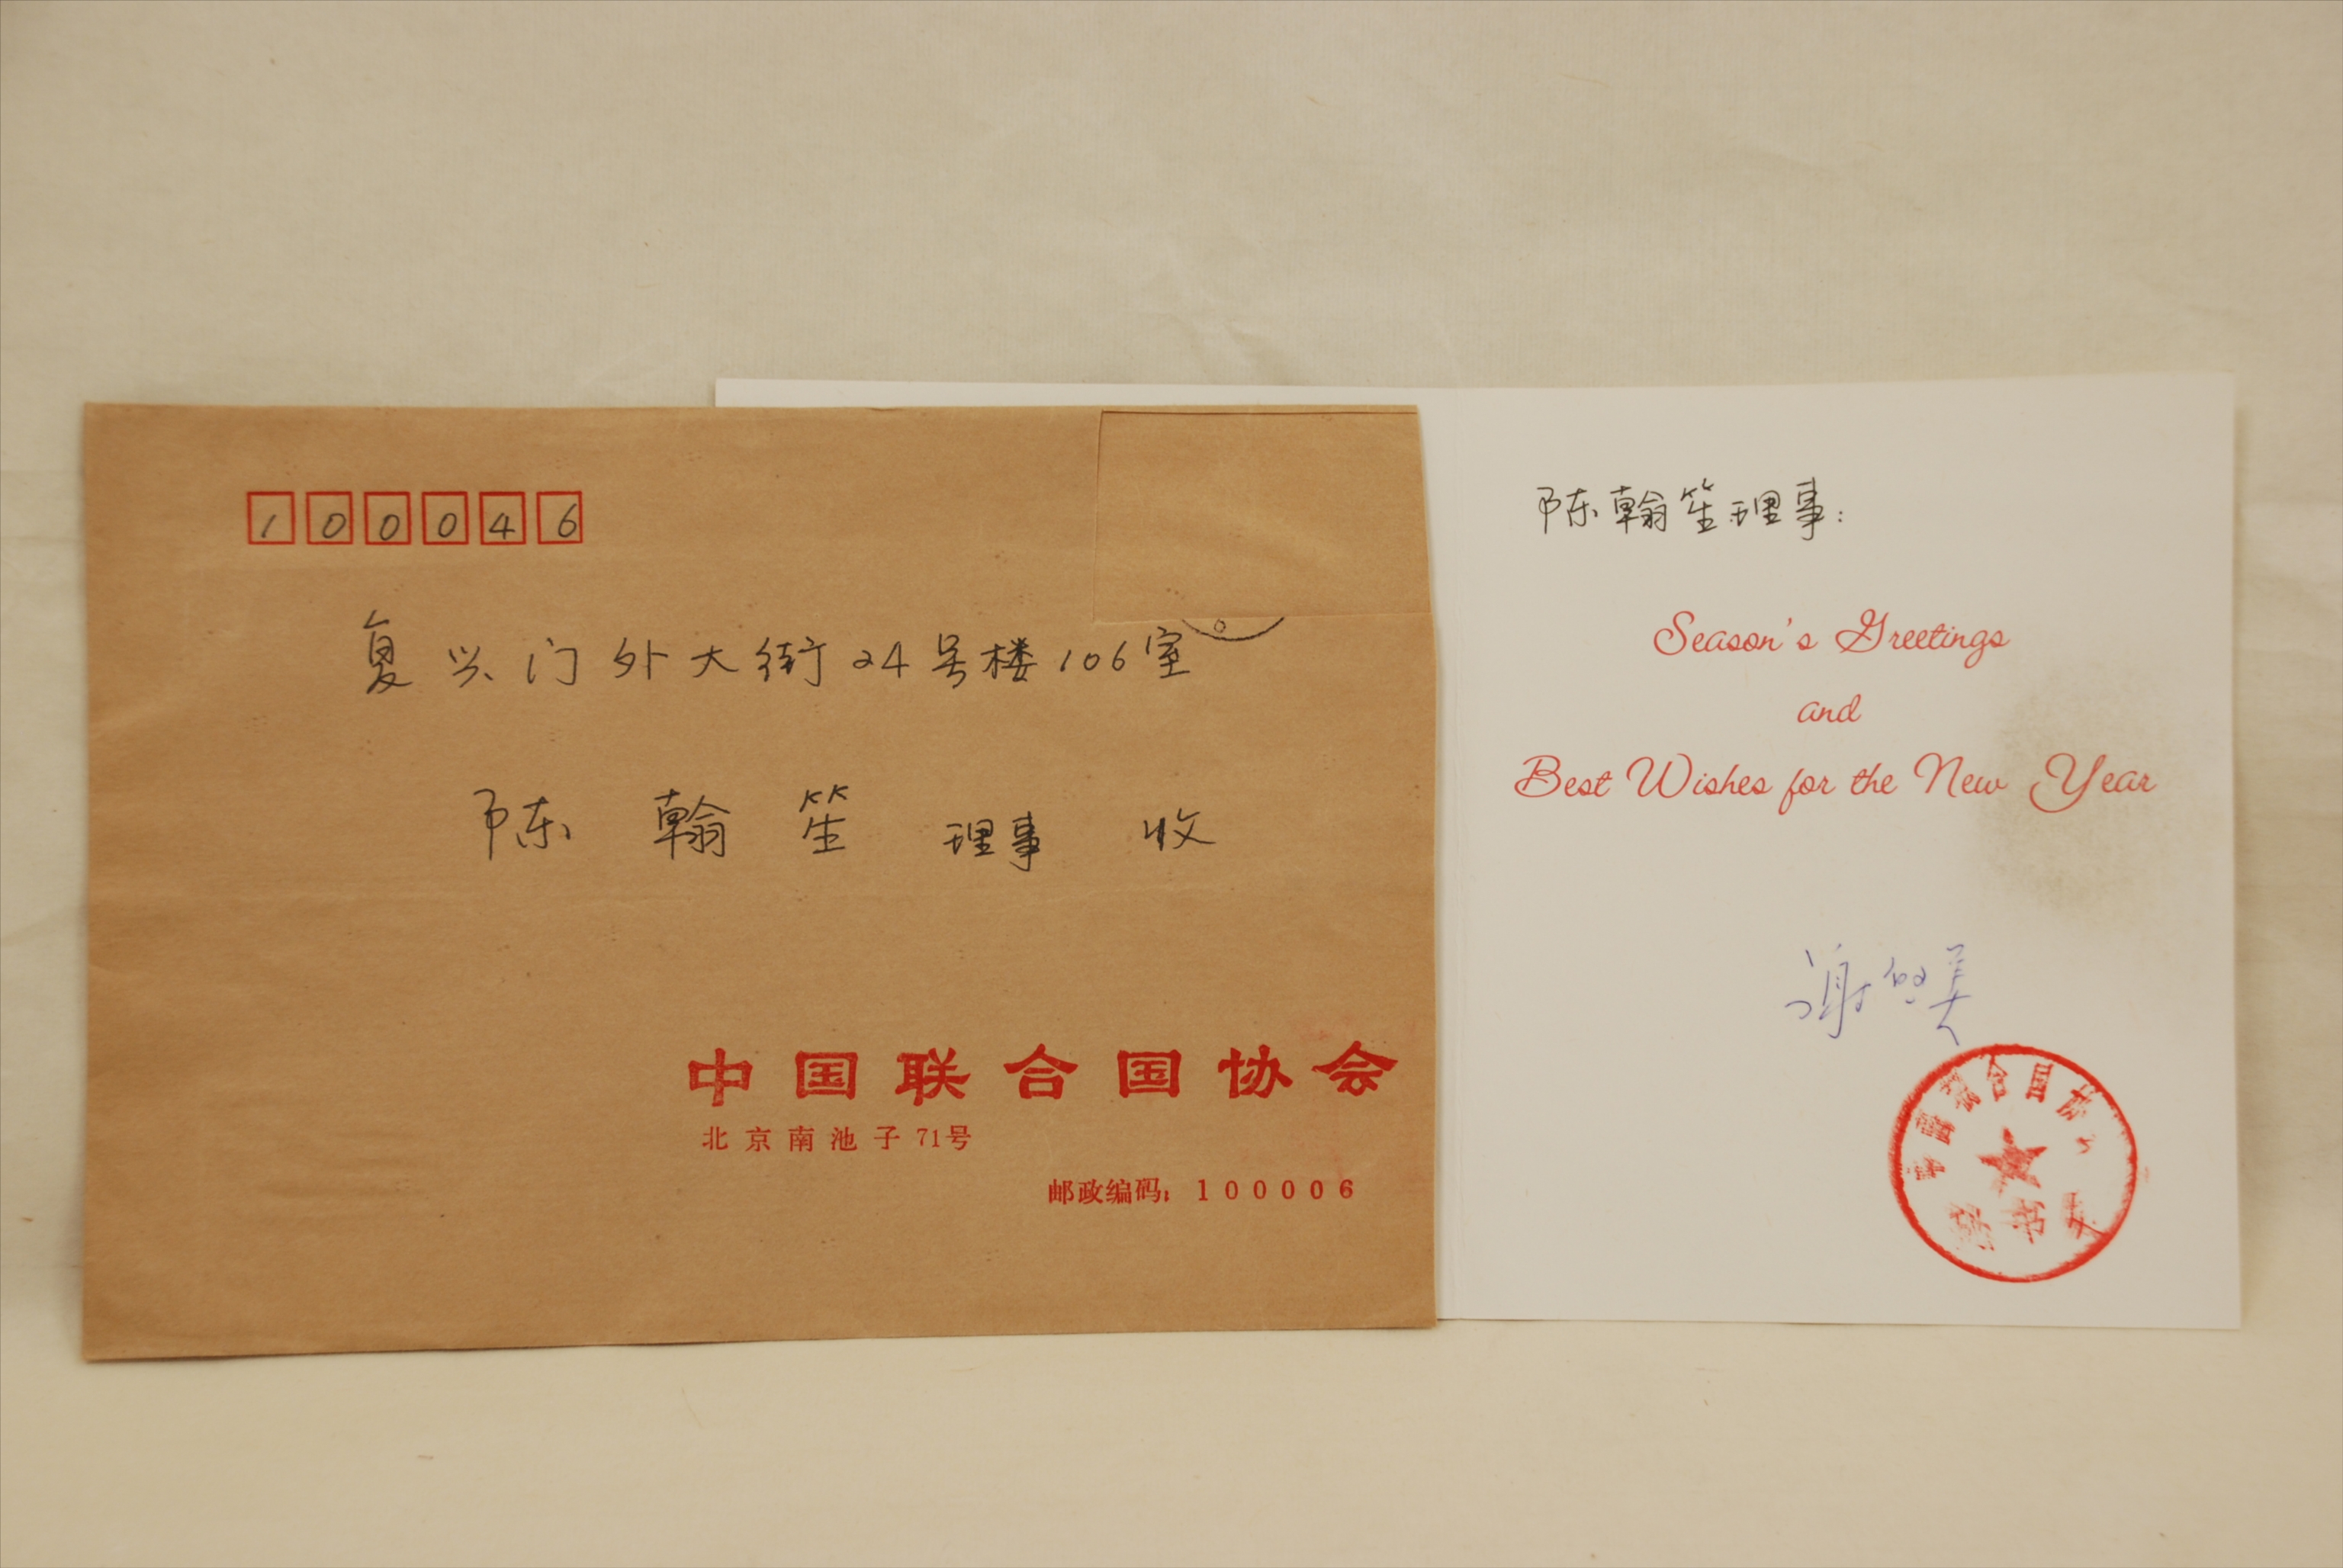 100046
复兴门外大街24号楼106室
陈翰笙 理事 收
中国联合国协会
北京南池子71号
邮政编码：100006
陈翰笙理事：
Season's Greetings
and
Best Wishes for the New Year
谢启美
中国联合国协会
秘书处